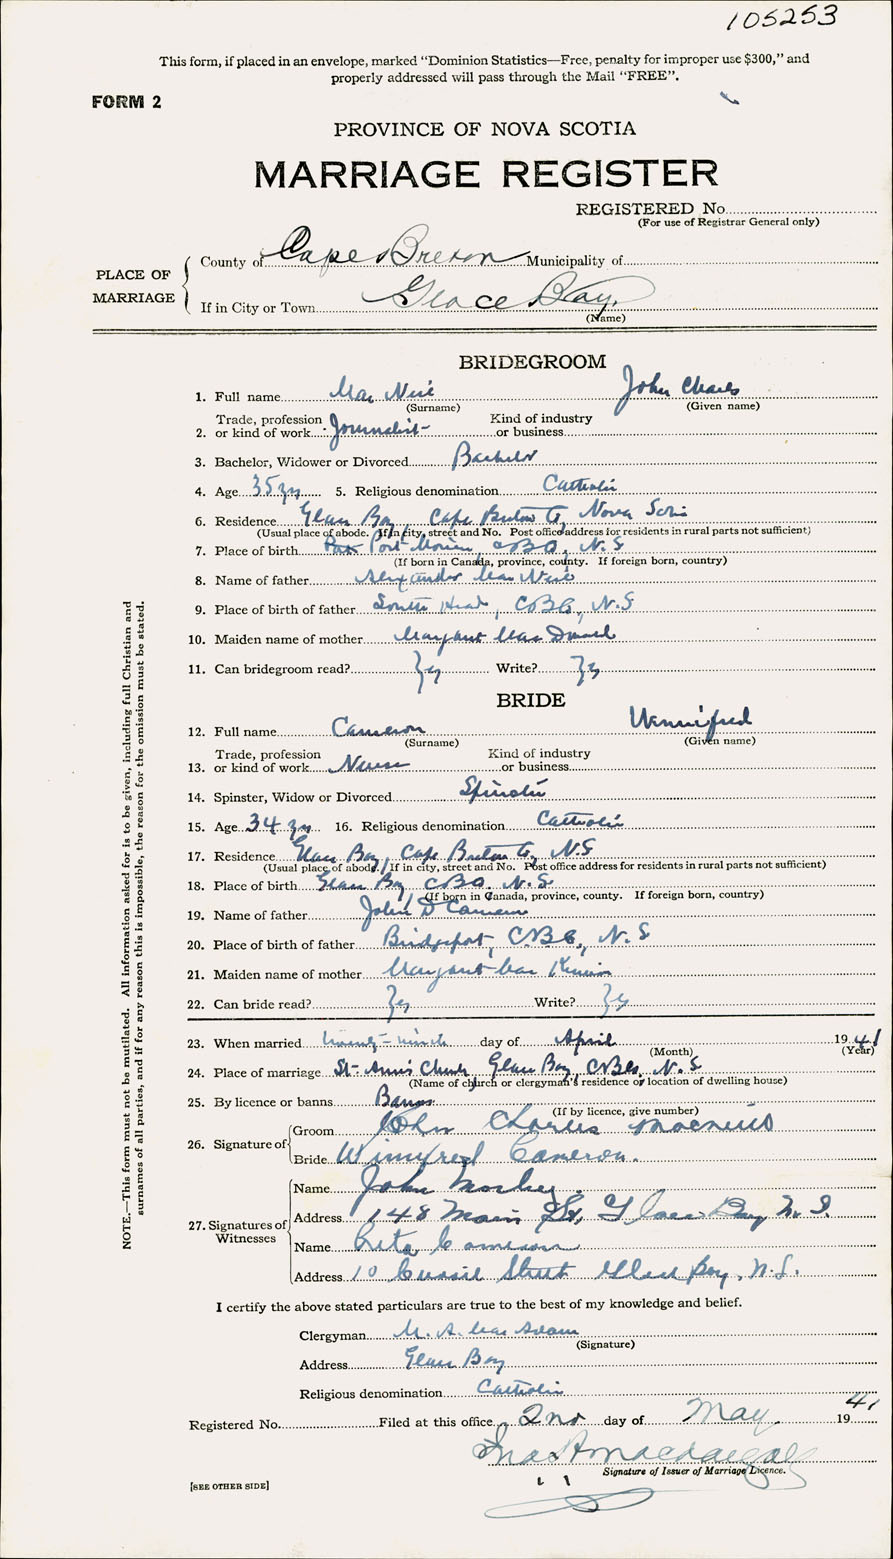 105253
This form, if placed in an envelope, marked “Dominion Statistics—Free, penalty for improper use $300,” and
properly addressed will pass through the Mail “FREE”.
FORM 2
PROVINCE OF NOVA SCOTIA
MARRIAGE REGISTER
REGISTERED No.
(For use of Registrar General only)
PLACE OF MARRIAGE
County of Cape Breton Municipality of
If in City or Town Glace Bay.
(Name)
BRIDEGROOM
1. Full name Mac Neil John Charles
(Surname) (Given name)
Trade, profession Kind of industry
2. or kind of work Journalist or business
3. Bachelor, Widower or Divorced Bachelor
4. Age 35 yrs 5. Religious denomination Catholic
6. Residence Glace Bay, Cape Breton Co, Nova Scotia
(Usual place of abode. If in city, street and No. Post office address for residents in rural parts not sufficient)
7. Place of birth Port Morien, CB Co, N.S
(If born in Canada, province, county. If foreign born, country)
8. Name of father Alexander Mac Neil
9. Place of birth of father South Head, CB Co, N.S
10. Maiden name of mother Margaret Mac Donald
11. Can bridegroom read? Yes Write? Yes
BRIDE
12. Full name Cameron Winnifred
(Surname) (Given name)
Trade, profession Kind of industry
13. or kind of work Nurse or business
14. Spinster, Widow or Divorced Spinster
15. Age 34 yrs 16. Religious denomination Catholic
17. Residence Glace Bay, Cape Breton Co, N.S
(Usual place of abode. If in city, street and No. Post office address for residents in rural parts not sufficient)
18. Place of birth Glace Bay CB Co. N.S.
(If born in Canada, province, county. If foreign born, country)
19. Name of father John D Cameron
20. Place of birth of father Bridgeport, CB Co, N.S
21. Maiden name of mother Margaret Mac
22. Can bride read? Yes Write? Yes
23. When married twenty-ninth day of April 1941
(Month) (Year)
24. Place of marriage St. Ann's Church Glace Bay, CB Co, N.S
(Name of church or clergyman's residence or location of dwelling house)
25. By licence or banns Banns
(If by licence, give number)
26. Signature of
Groom John Charles MacNeil
Bride Winnifred Cameron.
27. Signatures of Witnesses
Name John
Address 148 Main St, Glace Bay N.S.
Name Rita Cameron
Address 10 Street Glace Bay, N.S.
I certify the above stated particulars are true to the best of my knowledge and belief.
Clergyman M. A. Mac Adam
(Signature)
Address Glace Bay
Religious denomination Catholic
Registered No. Filed at this office 2nd day of May 1941
Signature of Issuer of Marriage Licence.
[SEE OTHER SIDE]
NOTE.—This form must not be mutilated. All information asked for is to be given, including full Christian and
surnames of all parties, and if for any reason this is impossible, the reason for the omission must be stated.